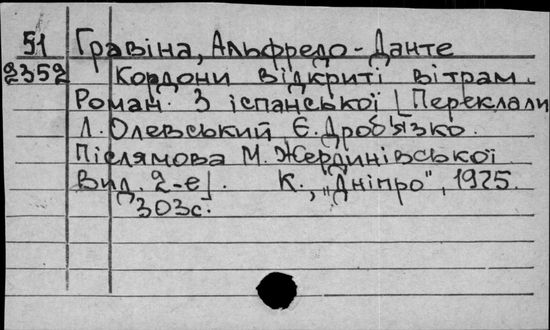 51 Гравіна, Альфредо-Данте
2352 Кордони відкриті вітрам.
Роман. З іспанської [Переклали
Л. Олевський Є. Дроб'язко.
Післямова М. Жердинівської
Вид. 2-е]. К., "Дніпро", 1975.
303с.